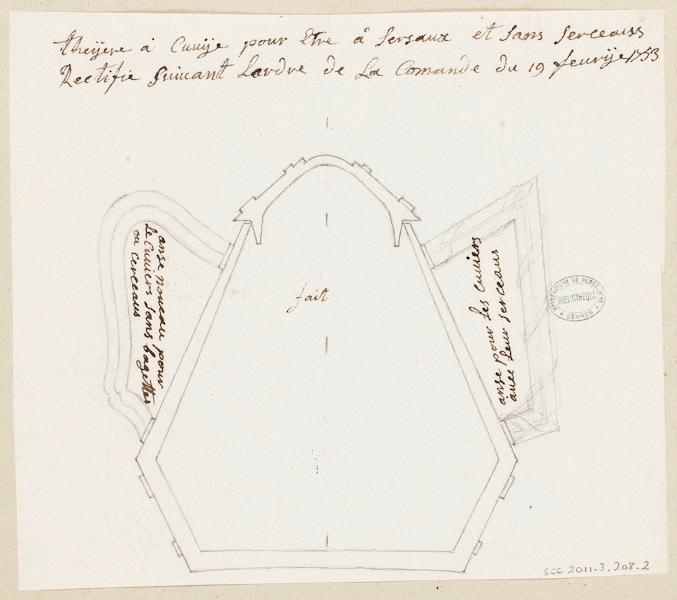 theÿere à Cuuije pour Etre à Sersaux et sans serceauss
Rectifie Suiuant Lordre de La Comande du 19 feurije 1753
fait
anse noueau pour
le Cuuiers sans bagettes
ou cerceaux
anse pour les Cuuiers
auec leur serceaus
MANUFACTURE DE PORCELAINE
SEVRES
SCC 2011-3-208-2